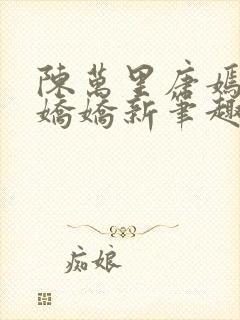 陳萬里唐嫣
嬌嬌新筆趣
痴娘